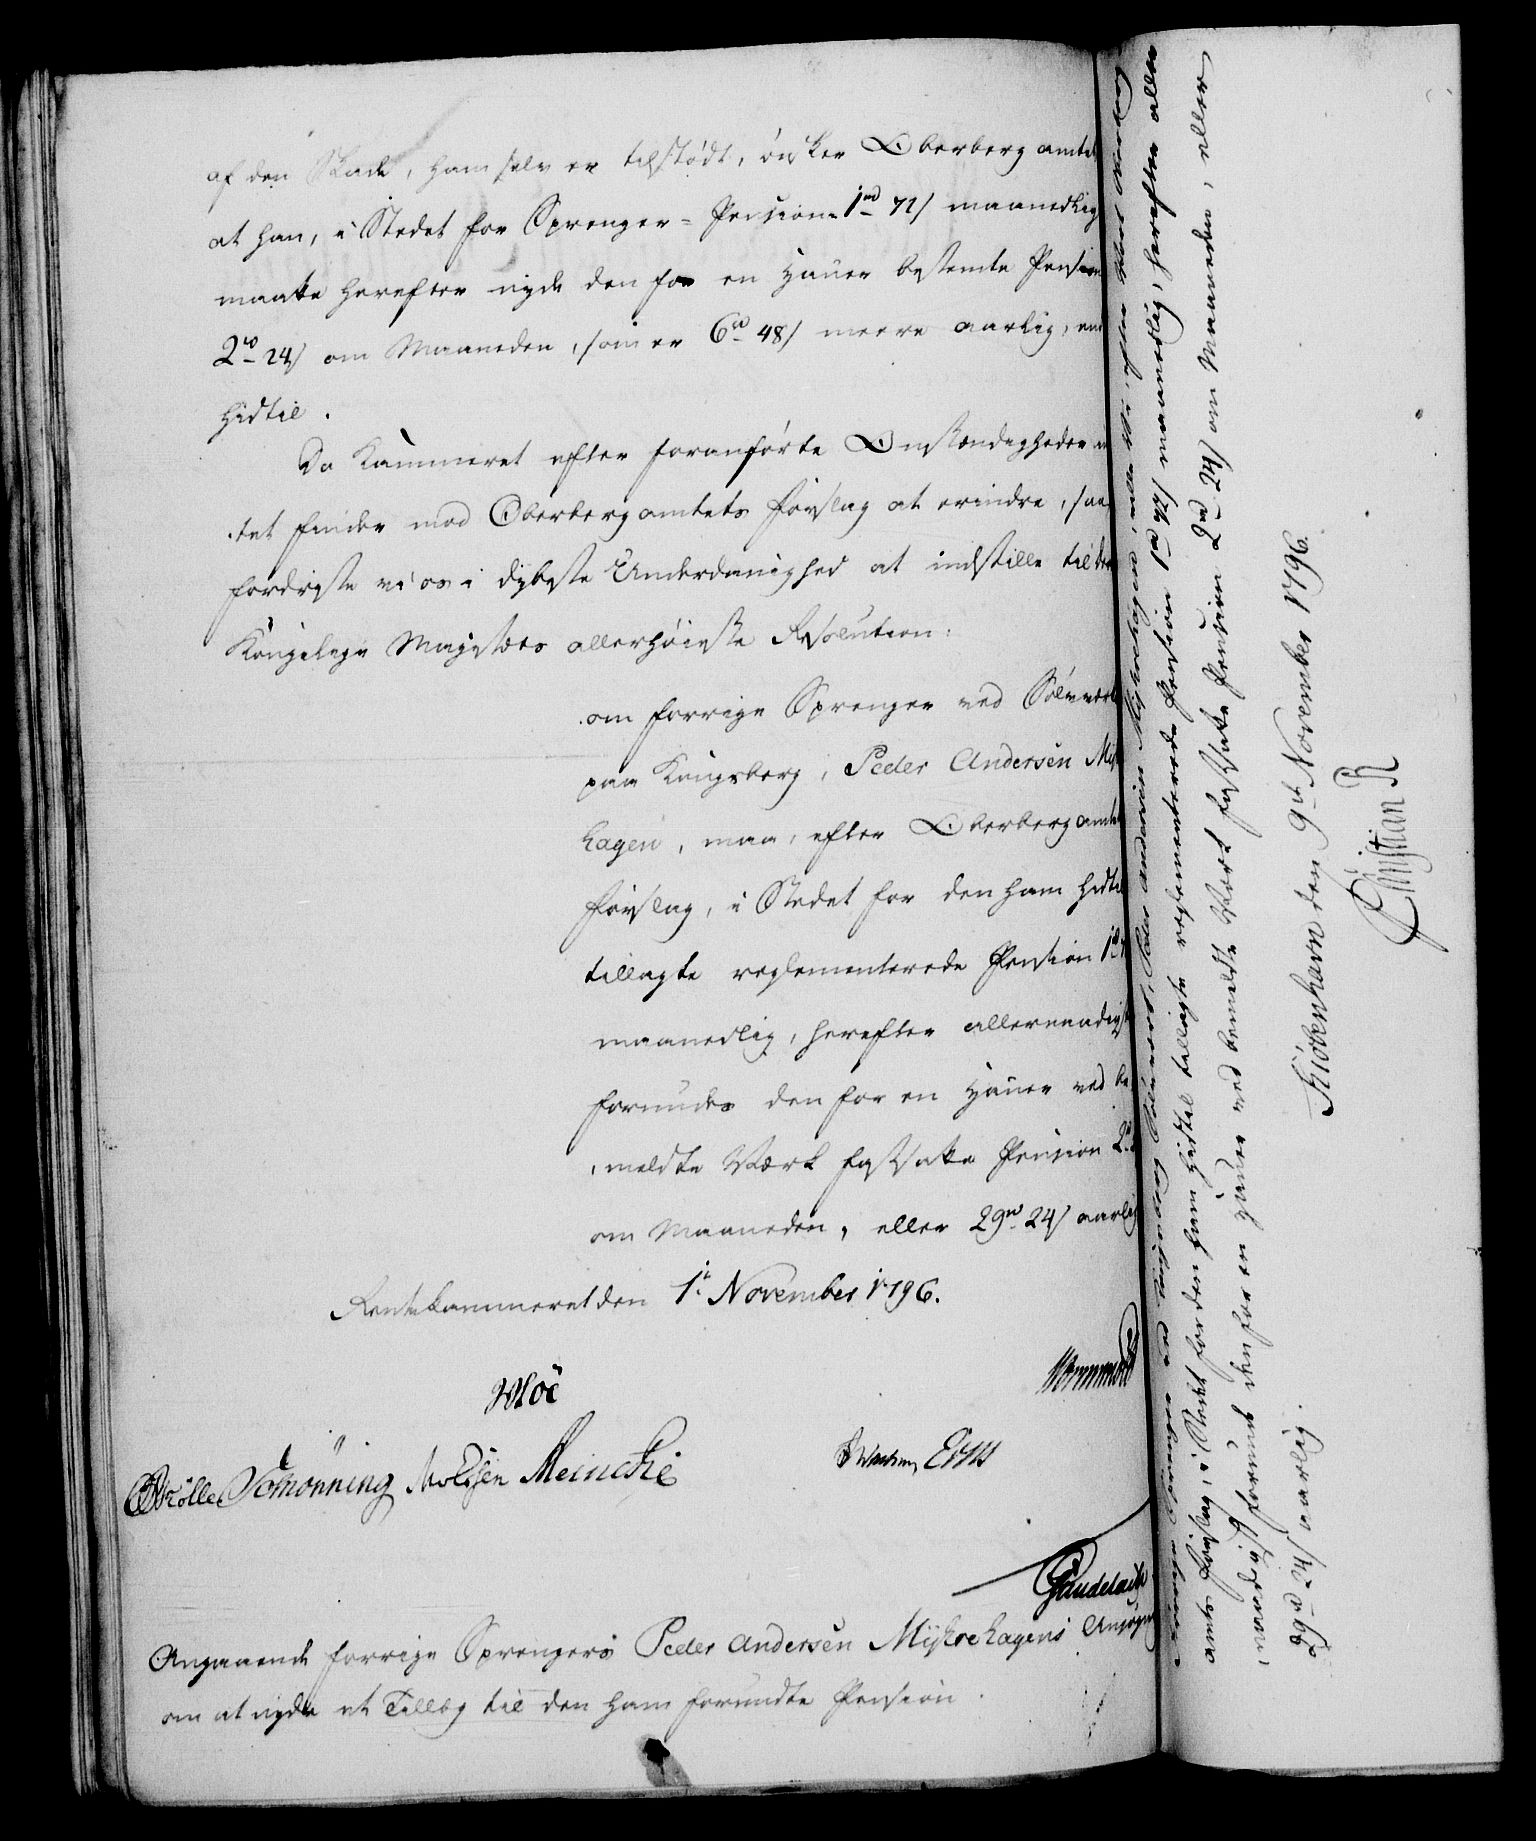 af den Skade, ham selv er tilstødt, ønsker Oberbergamtet
at han, i Stedet for Sprenger-Pension 1rd 72/ maanedlig
maatte herefter nyde den for en Hauer bestemte Pension
2rd 24/ om Maaneden, som er 6rd 48/ meere aarlig, end
hidtil.
Da Kammeret efter foranførte Omstændigheder in
tet finder mod Oberbergamtets Forslag at erindre, saa
fordriste vi os i dybeste Underdanighed at indstille til Deres
Kongelige Majestæts allerhøieste Resolution:
om forrige Sprenger ved Sølvværket
paa Kongsberg, Peder Andersen Myhre
hagen, maa, efter Oberbergamtets
Forslag, i Stedet for den ham hidtil
tillagte reglementerede Pension 1rd 72
maanedlig, herefter allernaadigst
forundes den for en Hauer ved be
meldte Værk fastsatte Pension 2rd 24
om Maaneden, eller 29rd 24/ aarlig
Rentekammeret den 1te November 1796.
Moe
Wormskiold
Schønning Meincke
Angaaende forrige Sprengers Peder Andersen Myhrehagens Ansøgning
om at nyde et Tillæg til den ham forundte Pension.
forrige Sprenger ved Kongsberg Sølvværk, Peder Andersen Myhrehagen, ville Vi, efter Vort Oberberg
amts Forslag, i Stedet for den ham hidtil tillagte reglementerede Pension 1rd 72/ maanedlig, herefter aller
naadigst forunde den for en Hauer ved bemeldte Vort Værk fastsatte Pension 2rd 24/ om Maaneden, eller
29rd 24/ aarlig.
Kiøbenhavn den 9de November 1796.
Christian R